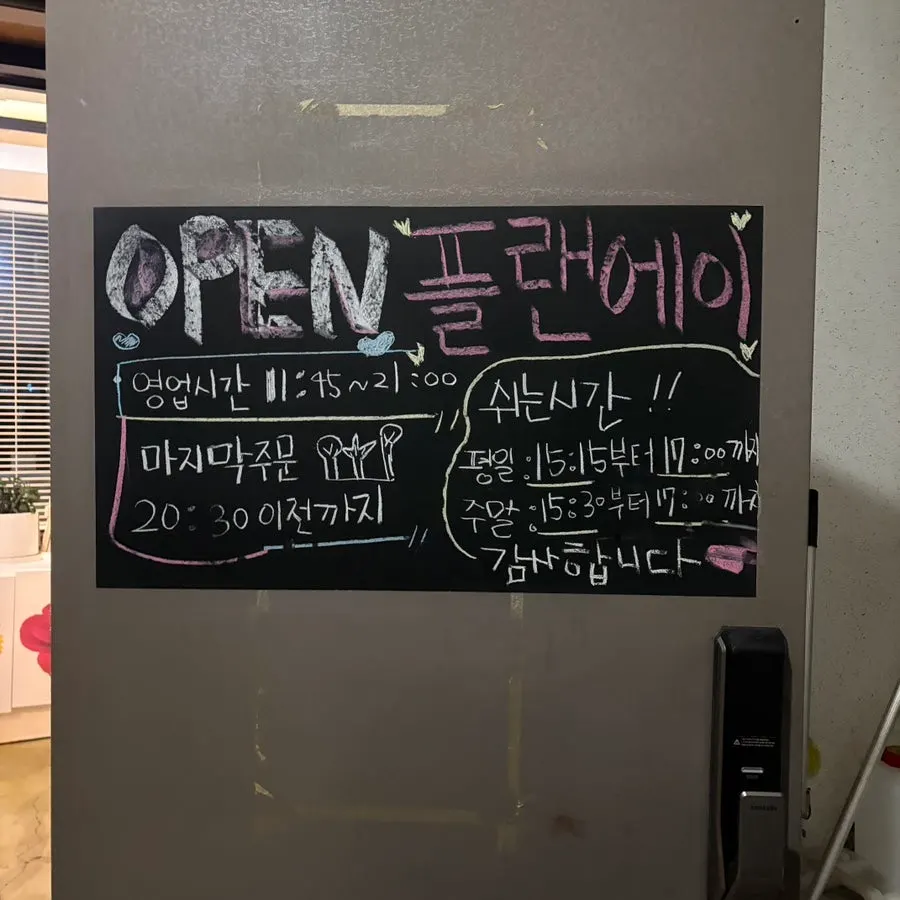 OPEN 플랜에이
영업시간 11:45~21:00
마지막주문
20:30 이전까지
쉬는시간 !!
평일 :15:15부터 17:00까지
주말 :15:30부터 17:00 까지
감사합니다